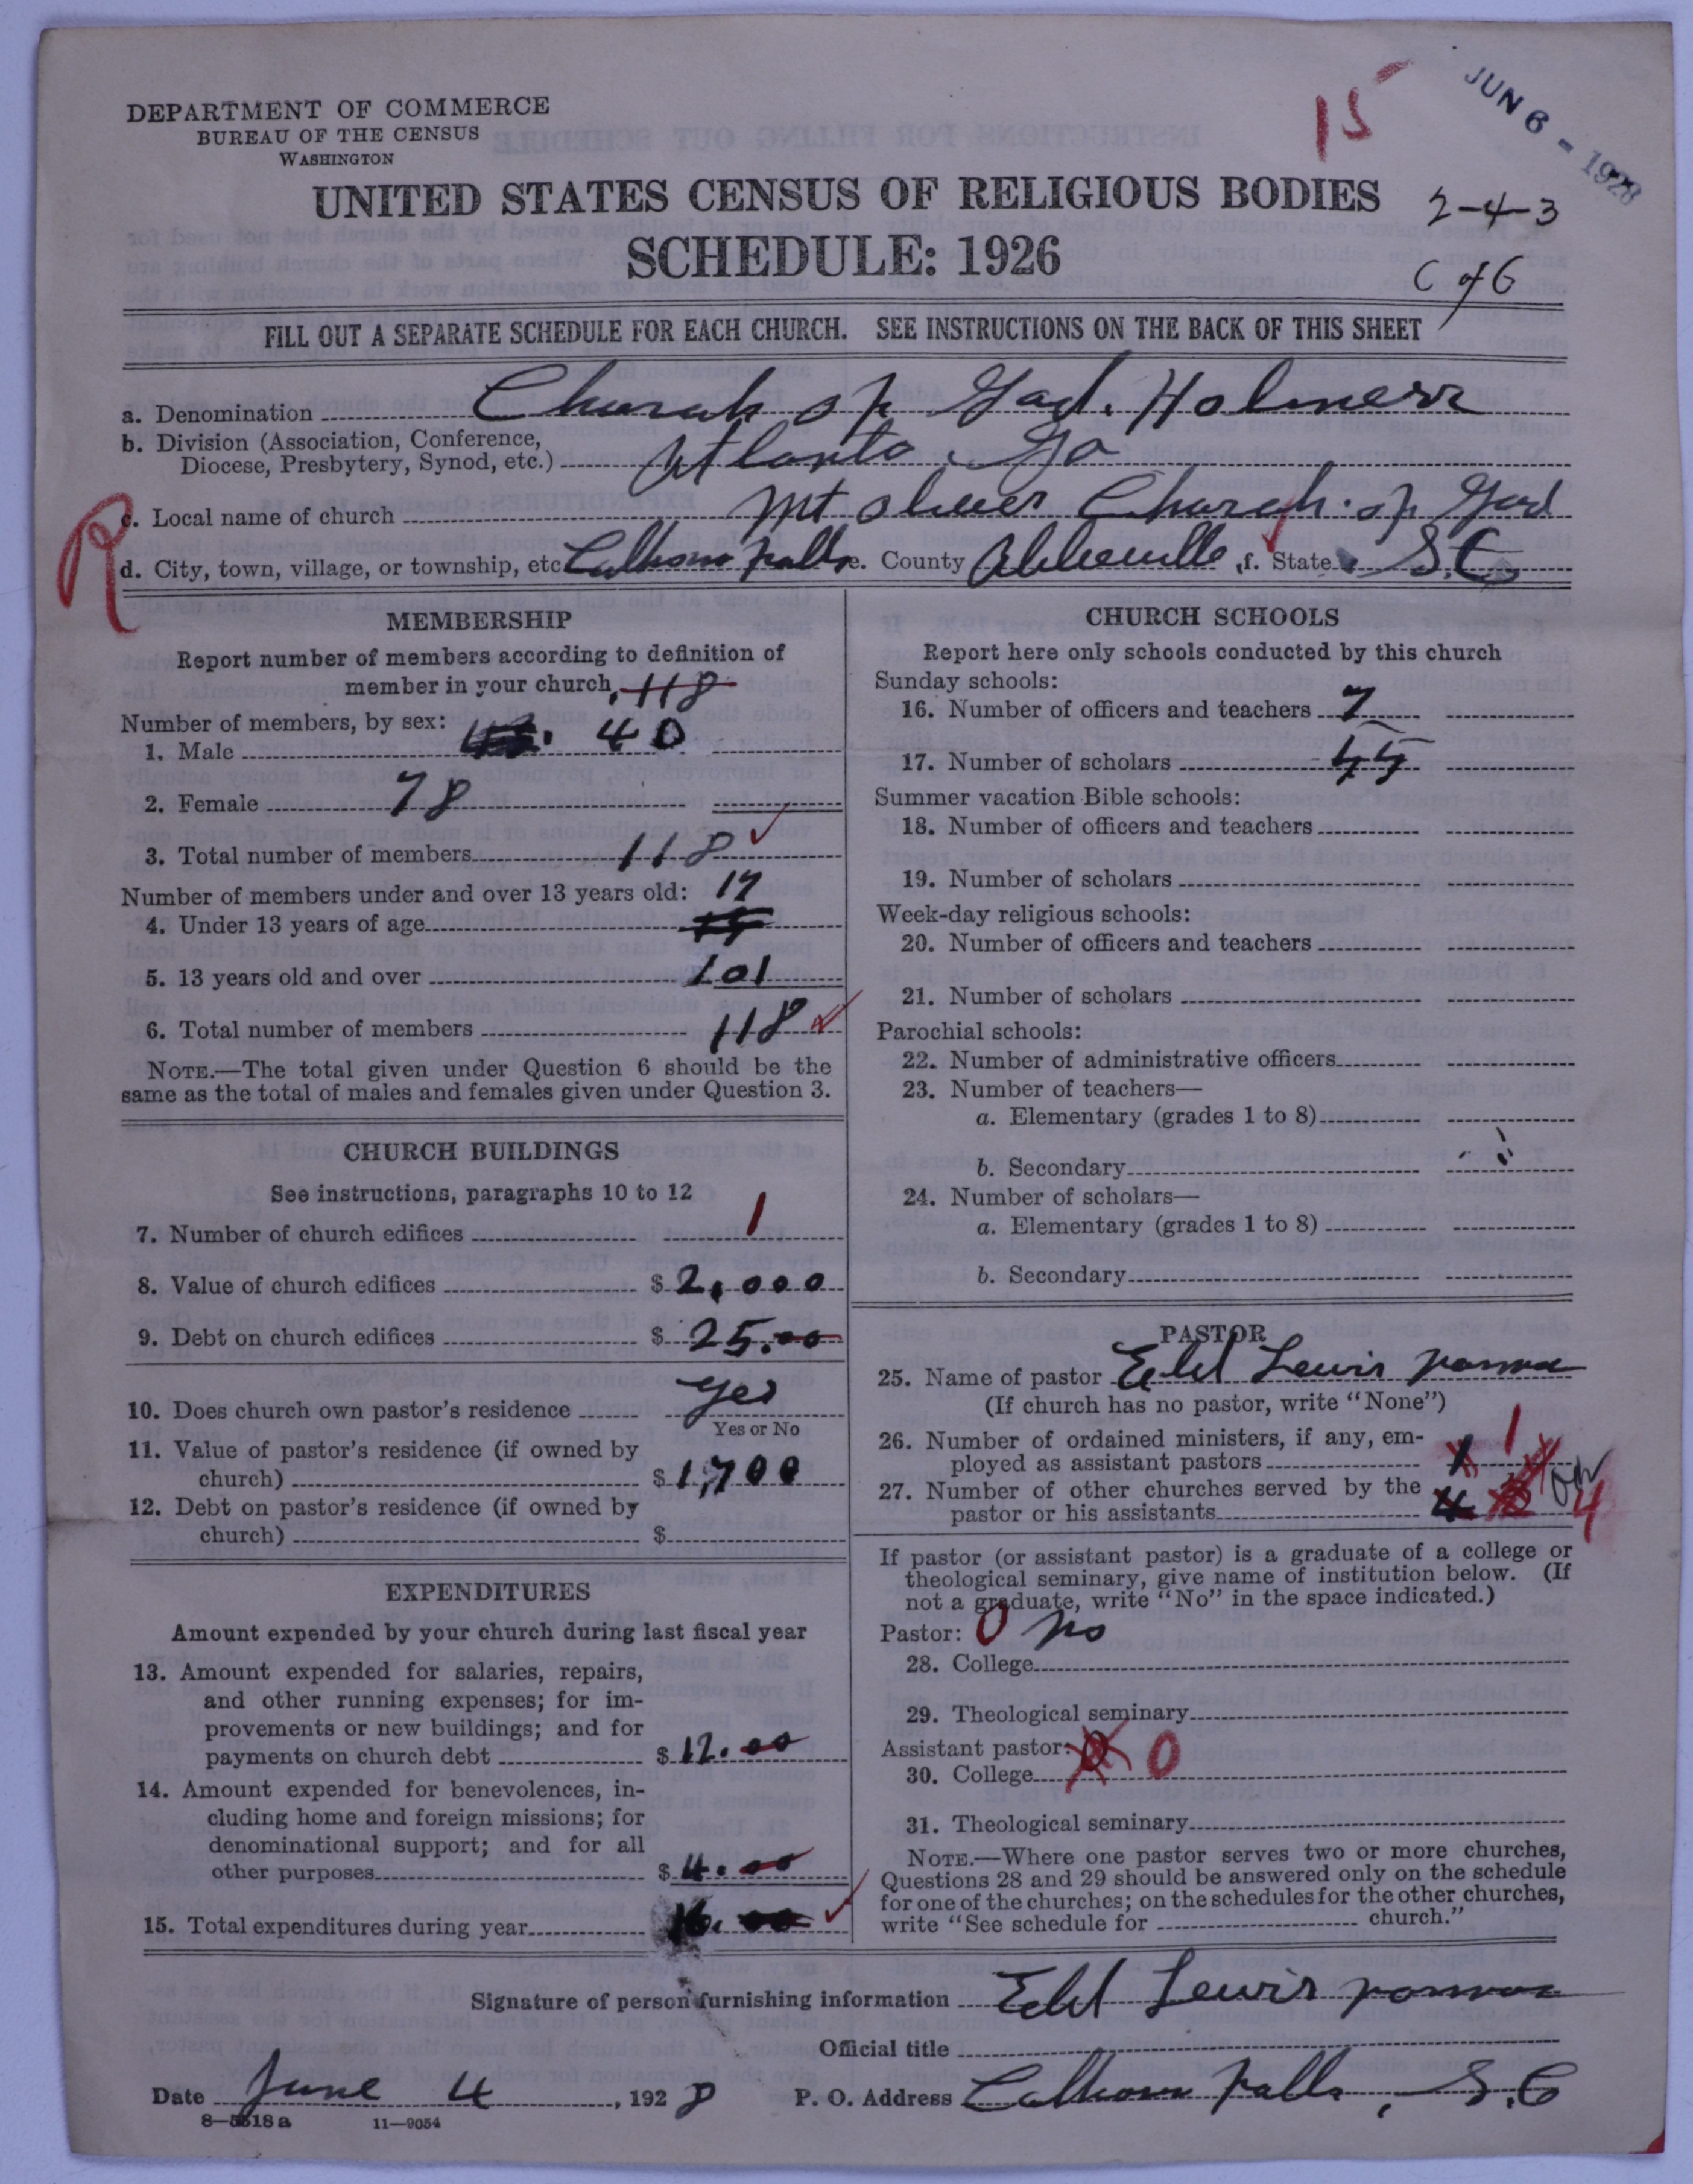 DEPARTMENT OF COMMERCE
BUREAU OF THE CENSUS
WASHINGTON
15
JUN 6 - 1928
UNITED STATES CENSUS OF RELIGIOUS BODIES
2-4-3
SCHEDULE: 1926
C of G
FILL OUT A SEPARATE SCHEDULE FOR EACH CHURCH. SEE INSTRUCTIONS ON THE BACK OF THIS SHEET
a. Denomination Church of God. Holiness
b. Division (Association, Conference,
Diocese, Presbytery, Synod, etc.) Atlanta, Ga
R
c. Local name of church Mt Church of God
d. City, town, village, or township, etc Calhoun Falls e. County Abbeville f. State S.C.
MEMBERSHIP
Report number of members according to definition of
member in your church, 118
Number of members, by sex:
1. Male 40
2. Female 78
3. Total number of members 118
Number of members under and over 13 years old: 17
4. Under 13 years of age
5. 13 years old and over 101
6. Total number of members 118
NOTE.—The total given under Question 6 should be the
same as the total of males and females given under Question 3.
CHURCH BUILDINGS
See instructions, paragraphs 10 to 12
7. Number of church edifices 1
8. Value of church edifices $ 2,000
9. Debt on church edifices $ 25.00
10. Does church own pastor's residence yes
Yes or No
11. Value of pastor's residence (if owned by
church) $ 1,700
12. Debt on pastor's residence (if owned by
church) $
EXPENDITURES
Amount expended by your church during last fiscal year
13. Amount expended for salaries, repairs,
and other running expenses; for im-
provements or new buildings; and for
payments on church debt $ 12.00
14. Amount expended for benevolences, in-
cluding home and foreign missions; for
denominational support; and for all
other purposes $ 4.00
15. Total expenditures during year 16.00
CHURCH SCHOOLS
Report here only schools conducted by this church
Sunday schools:
16. Number of officers and teachers 7
17. Number of scholars 45
Summer vacation Bible schools:
18. Number of officers and teachers
19. Number of scholars
Week-day religious schools:
20. Number of officers and teachers
21. Number of scholars
Parochial schools:
22. Number of administrative officers
23. Number of teachers—
a. Elementary (grades 1 to 8)
b. Secondary
24. Number of scholars—
a. Elementary (grades 1 to 8)
b. Secondary
PASTOR
25. Name of pastor Eld Lewis
(If church has no pastor, write "None")
26. Number of ordained ministers, if any, em-
ployed as assistant pastors 1 1
27. Number of other churches served by the
pastor or his assistants 4 4
If pastor (or assistant pastor) is a graduate of a college or
theological seminary, give name of institution below. (If
not a graduate, write "No" in the space indicated.)
Pastor: 0 no
28. College
29. Theological seminary
Assistant pastor: 0 0
30. College
31. Theological seminary
NOTE.—Where one pastor serves two or more churches,
Questions 28 and 29 should be answered only on the schedule
for one of the churches; on the schedules for the other churches,
write "See schedule for church."
Signature of person furnishing information Eld Lewis
Official title
Date June 4, 1928 P. O. Address Calhoun Falls, S.C
8—5518 a 11—9054